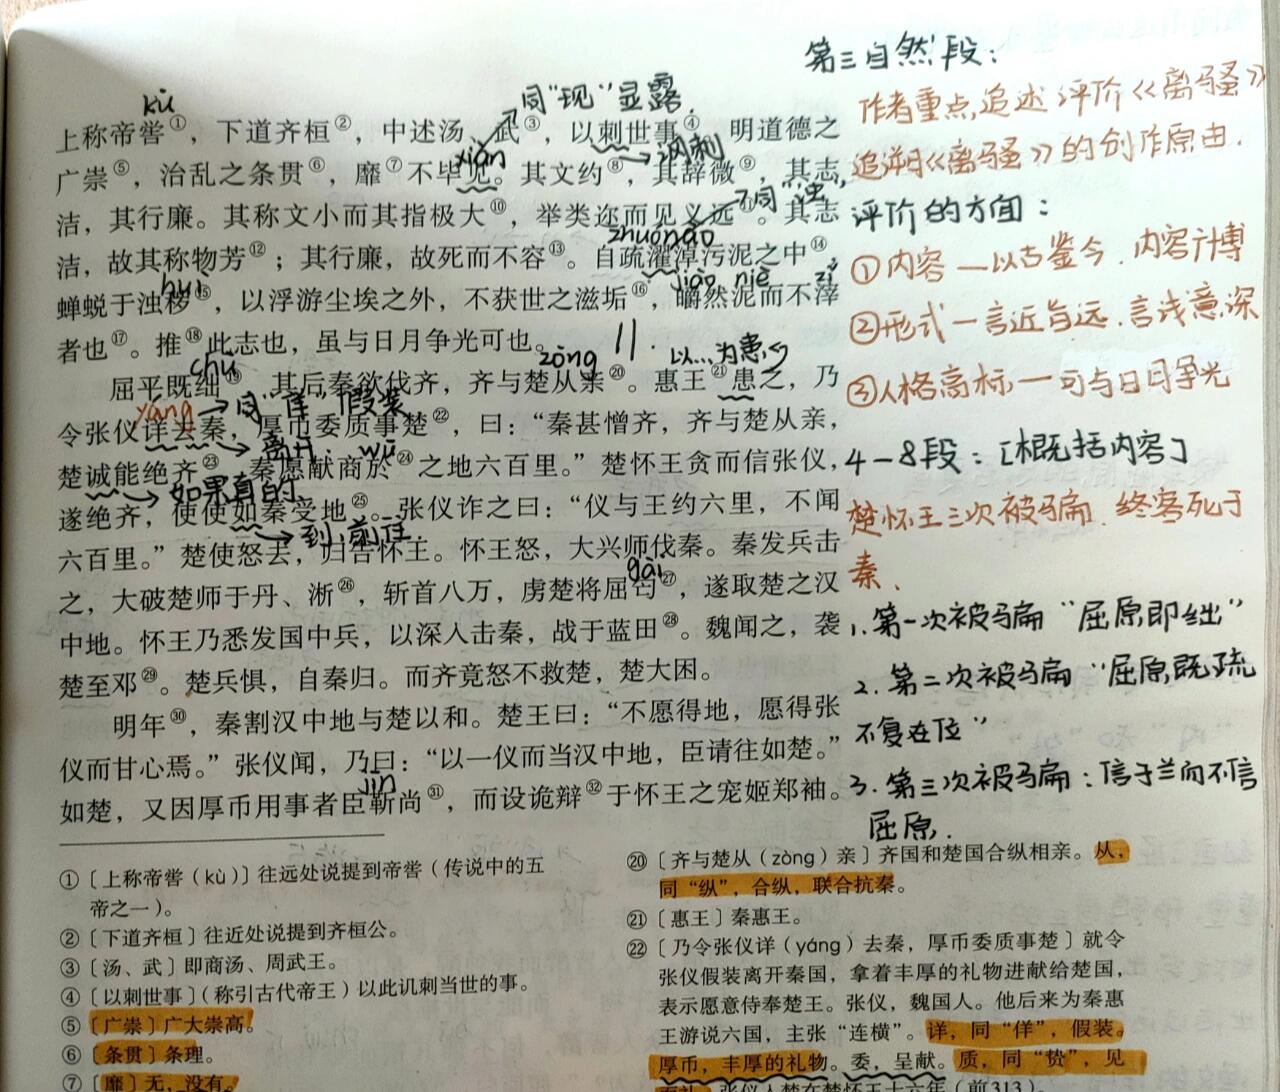 kù
同“现”显露.
上称帝喾①，下道齐桓②，中述汤、武③，以刺世事④。明道德之
xiàn
讽刺
广崇⑤，治乱之条贯⑥，靡⑦不毕见。其文约⑧，其辞微⑨，其志
洁，其行廉。其称文小而其指极大⑩，举类迩而见义远⑪。其志
zhuónào
洁，故其称物芳⑫；其行廉，故死而不容⑬。自疏濯淖污泥之中⑭，
huì
jiào niè zǐ
蝉蜕于浊秽⑮，以浮游尘埃之外，不获世之滋垢⑯，皭然泥而不滓
者也⑰。推⑱此志也，虽与日月争光可也。
chù
zòng
以…为患
屈平既绌⑲，其后秦欲伐齐，齐与楚从亲⑳。惠王㉑患之，乃
yáng→同“佯”假装
令张仪详去秦，厚币委质事楚㉒，曰：“秦甚憎齐，齐与楚从亲，
离开. wū
楚诚能绝齐㉓，秦愿献商於㉔之地六百里。”楚怀王贪而信张仪，
如果真的
遂绝齐，使使如秦受地㉕。张仪诈之曰：“仪与王约六里，不闻
到,前往
六百里。”楚使怒去，归告怀王。怀王怒，大兴师伐秦。秦发兵击
gài
之，大破楚师于丹、淅㉖，斩首八万，虏楚将屈匄㉗，遂取楚之汉
中地。怀王乃悉发国中兵，以深入击秦，战于蓝田㉘。魏闻之，袭
楚至邓㉙。楚兵惧，自秦归。而齐竟怒不救楚，楚大困。
明年㉚，秦割汉中地与楚以和。楚王曰：“不愿得地，愿得张
仪而甘心焉。”张仪闻，乃曰：“以一仪而当汉中地，臣请往如楚。”
jìn
如楚，又因厚币用事者臣靳尚㉛，而设诡辩㉜于怀王之宠姬郑袖。
第三自然段：
作者重点追述评价《离骚》
追溯《离骚》的创作原由.
评价的方面：
①内容—以古鉴今.内容广博
②形式—言近旨远.言浅意深
③人格高标—可与日月争光
4-8段：[概括内容]
楚怀王三次被骗.终客死于
秦.
1.第一次被骗“屈原即绌”
2.第二次被骗“屈原既疏
不复在位”
3.第三次被骗：信子兰而不信
屈原.
①〔上称帝喾（kù）〕往远处说提到帝喾（传说中的五
帝之一）。
②〔下道齐桓〕往近处说提到齐桓公。
③〔汤、武〕即商汤、周武王。
④〔以刺世事〕（称引古代帝王）以此讥刺当世的事。
⑤〔广崇〕广大崇高。
⑥〔条贯〕条理。
⑦〔靡〕无，没有。
⑳〔齐与楚从（zòng）亲〕齐国和楚国合纵相亲。从，
同“纵”，合纵，联合抗秦。
㉑〔惠王〕秦惠王。
㉒〔乃令张仪详（yáng）去秦，厚币委质事楚〕就令
张仪假装离开秦国，拿着丰厚的礼物进献给楚国，
表示愿意侍奉楚王。张仪，魏国人。他后来为秦惠
王游说六国，主张“连横”。详，同“佯”，假装。
厚币，丰厚的礼物。委，呈献。质，同“贽”，见
面礼。张仪入楚在楚怀王十六年（前313）